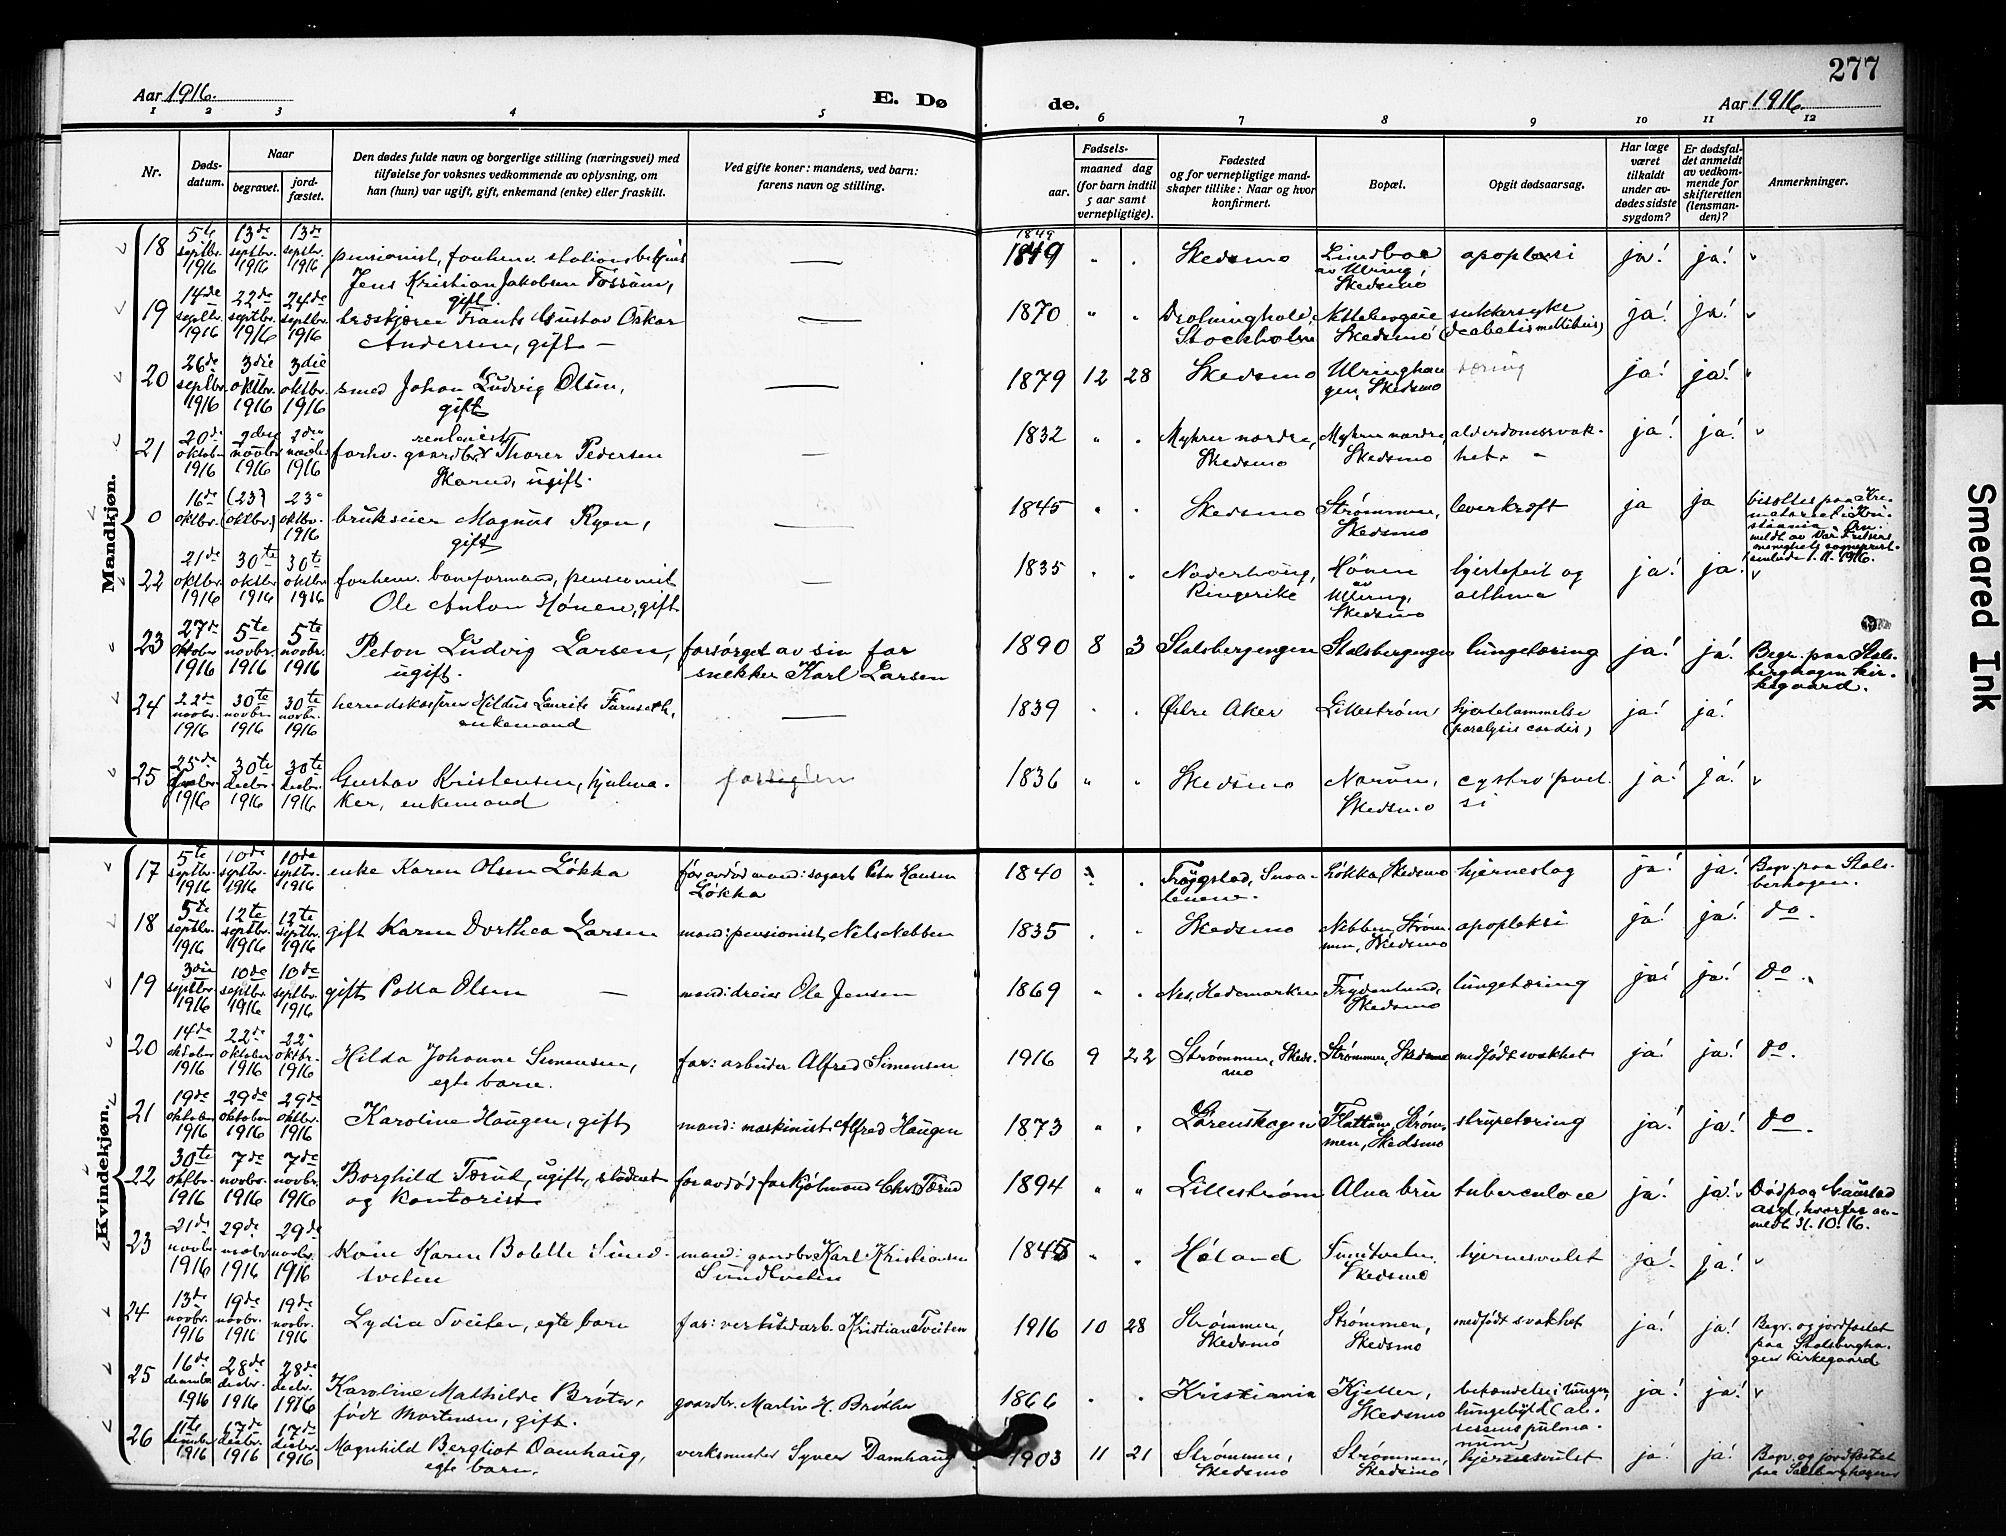 277
Aar 1916.
E. Dø
de.
Aar 1916
1 2 3 4 5 6 7 8 9 10 11 12
Nr.
Døds-
datum.
Naar
begravet.
jord-
fæstet.
Den dødes fulde navn og borgerlige stilling (næringsvei) med
tilføielse for voksnes vedkommende av oplysning, om
han (hun) var ugift, gift, enkemand (enke) eller fraskilt.
Ved gifte koner: mandens, ved barn:
farens navn og stilling.
Fødsels-
aar.
maaned dag
(for barn indtil
5 aar samt
vernepligtige).
Fødested
og for vernepligtige mand-
skaper tillike: Naar og hvor
konfirmert.
Bopæl.
Opgit dødsaarsag.
Har læge
været
tilkaldt
under av-
dødes sidste
sygdom?
Er dødsfal-
det anmeldt
av vedkom-
mende for
skifteretten
(lensman-
den)?
Anmerkninger.
Mandkjøn.
18 5te septbr. 1916 13de septbr. 1916 13de septbr. 1916 pensionist, forhenv. stationsbetjent
Jens Kristian Jakobsen Fossum,
gift
1849 1849 Skedsmo Lindboe
av Ulring,
Skedsmo apoplexi ja! ja!
19 14de septbr. 1916 22de septbr. 1916 24de septbr. 1916 træskjærer Frants Gustav Oskar
Andersen, gift
1870 Drotningholm,
Stockholm Skedsmo sukkersyke
ja! ja!
20 26de septbr. 1916 3die oktbr. 1916 3die oktbr. 1916 smed Johan Ludvig Olsen,
gift
1879 12 28 Skedsmo Ulringhau
gen, Skedsmo tæring ja! ja!
21 20de oktobr. 1916 novbr. 1916 novbr. 1916 rentenist
forhv. gaardbr. Thorer Pedersen
Skarud, ugift.
1832 Myhrer nordre,
Skedsmo Myhrer nordre,
Skedsmo alderdomssvak-
het. ja! ja!
0 16de oktbr. (23) (oktbr.) 23 oktbr. 1916 brukseier Magnus Ryen,
gift
1845 Skedsmo Strømmen,
Skedsmo leverkræft ja ja bisættes paa Kre-
matoriet i Kri-
stiania. An-
meldt av Vor Frelsers
menighets sogneprest-
embede 1.11.1916.
22 21de oktobr. 1916 30te oktbr. 1916 30te oktobr. 1916 forhenv. baneformand, pensionist
Ole Anton Hønen, gift
1835 Norderhaug,
Ringerike Hønen
av
Ulring,
Skedsmo hjertefeil og
asthma ja! ja!
23 27de oktober 1916 5te novbr. 1916 5te novbr. 1916 Peton Ludvig Larsen,
ugift.
forsørget av sin far
snekker Karl Larsen
1890 8 3 Stalsbergengen Stalsbergengen lungetæring ja! ja! Begr. paa Stals-
berghagen kir-
kegaard.
24 22de novbr. 1916 30te novbr. 1916 30te novbr. 1916 herredskasserer Hildus Laurits Furuseth,
enkemand
1839 Østre Aker Lillestrøm hjertelammelse
(paralysis cordis) ja! ja!
25 25de 1916 30te decbr. 1916 30te decbr. 1916 Gustav Kristensen, hjulma-
ker, enkemand
1836 Skedsmo Narum,
Skedsmo ja! ja!
Kvindekjøn.
17 5te septbr. 1916 10de septbr. 1916 10de septbr. 1916 enke Karen Olsen Løkka
før avdød mand: sagarb. Peter Hansen
Løkka
1840 Trøgstad, Smaa-
lenene. Løkka, Skedsmo hjerneslag ja! ja! Begr. paa Stals-
berhagen.
18 5te septbr. 1916 12te septbr. 1916 12te septbr. 1916 gift Karen Dorthea Larsen
mand: pensionist, Nils Nebben
1835 Skedsmo Nebben, Strøm-
men, Skedsmo apopleksi ja! ja! do.
19 3die septbr. 1916 10de septbr. 1916 10de septbr. 1916 gift Polla Olsen
mand: dreier Ole Jensen
1869 Nes, Hedemarken Frydenlund,
Skedsmo lungetæring ja! ja! do.
20 14de oktober 1916 22de oktober 1916 22 oktbr. 1916 Hilda Johanne Simensen,
egte barn.
far: arbeider Alfred Simensen
1916 9 22 Strømmen, Skeds-
mo Strømmen, Skedsmo medfødt svakhet ja! ja! do.
21 19de oktober 1916 29de oktober 1916 29de oktbr. 1916 Karoline Haugen, gift
mand: maskinist Alfred Haugen
1873 Lørenskogen Flattum, Strøm-
men, Skedsmo strupetæring ja! ja! do.
22 30te oktbr. 1916 7de novbr. 1916 7de novbr. 1916 Borghild Tærud, ugift, student
og kontorist
for avdød far kjøbmand Chr. Tærud
1894 Lillestrøm Alvabru tuberculose ja! ja! Død paa Gaustad
asyl, hvorfra an-
meldt 31.10.16.
23 21de novbr. 1916 29de novbr. 1916 29de novbr. 1916 Kone Karen Bolette Sund-
tveten
mand: gaardbr. Karl Kristiansen
Sundtveten
1845 Høland Sundtveten,
Skedsmo hjernesvulst ja! ja!
24 13de novbr. 1916 19de novbr. 1916 19de novbr. 1916 Lydia Tveiten, egte barn
far: verkstedarb. Kristian Tveiten
1916 10 28 Strømmen,
Skedsmo Strømmen,
Skedsmo medfødt svakhet ja! ja! Begr. og jordfæstet
paa Stalsbergha-
gen kirkegaard
25 16de december 1916 28de decbr. 1916 28de decbr. 1916 Karoline Mathilde Brøter,
født Mortensen, gift.
gaardbr. Martin H. Brøther
1866 Kristiania Kjeller,
Skedsmo betændelse i lungen,
lungebyld (ab-
sessus pulmo-
num) ja! ja!
26 11te december 1916 17de decbr. 1916 17de decbr. 1916 Magnhild Bergliot Damhaug,
egte barn.
verksmester Syver Damhaug
1903 11 21 Strømmen,
Skedsmo Strømmen,
Skedsmo hjernesvulst ja! ja! Begr. og jordfæstet
paa Stalsberghagen
Smeared Ink